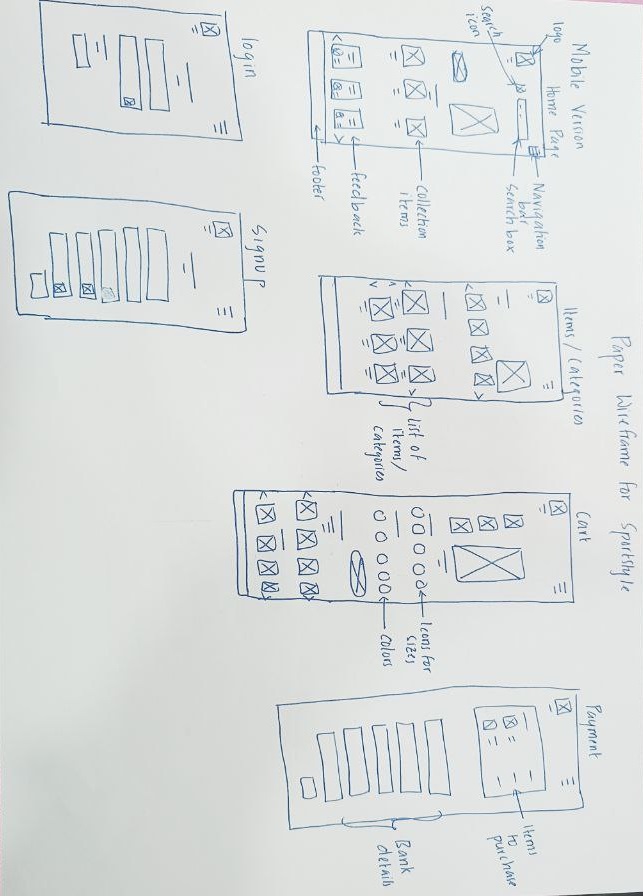 Paper Wireframe for Sportstyle
Mobile Version
Home Page
logo
Navigation
bar
Search box
Search
icon
collection
items
feedback
footer
Items / Categories
list of
items/
categories
Cart
Icons for
sizes
colors
Payment
Items
to
purchase
Bank
details
login
Signup